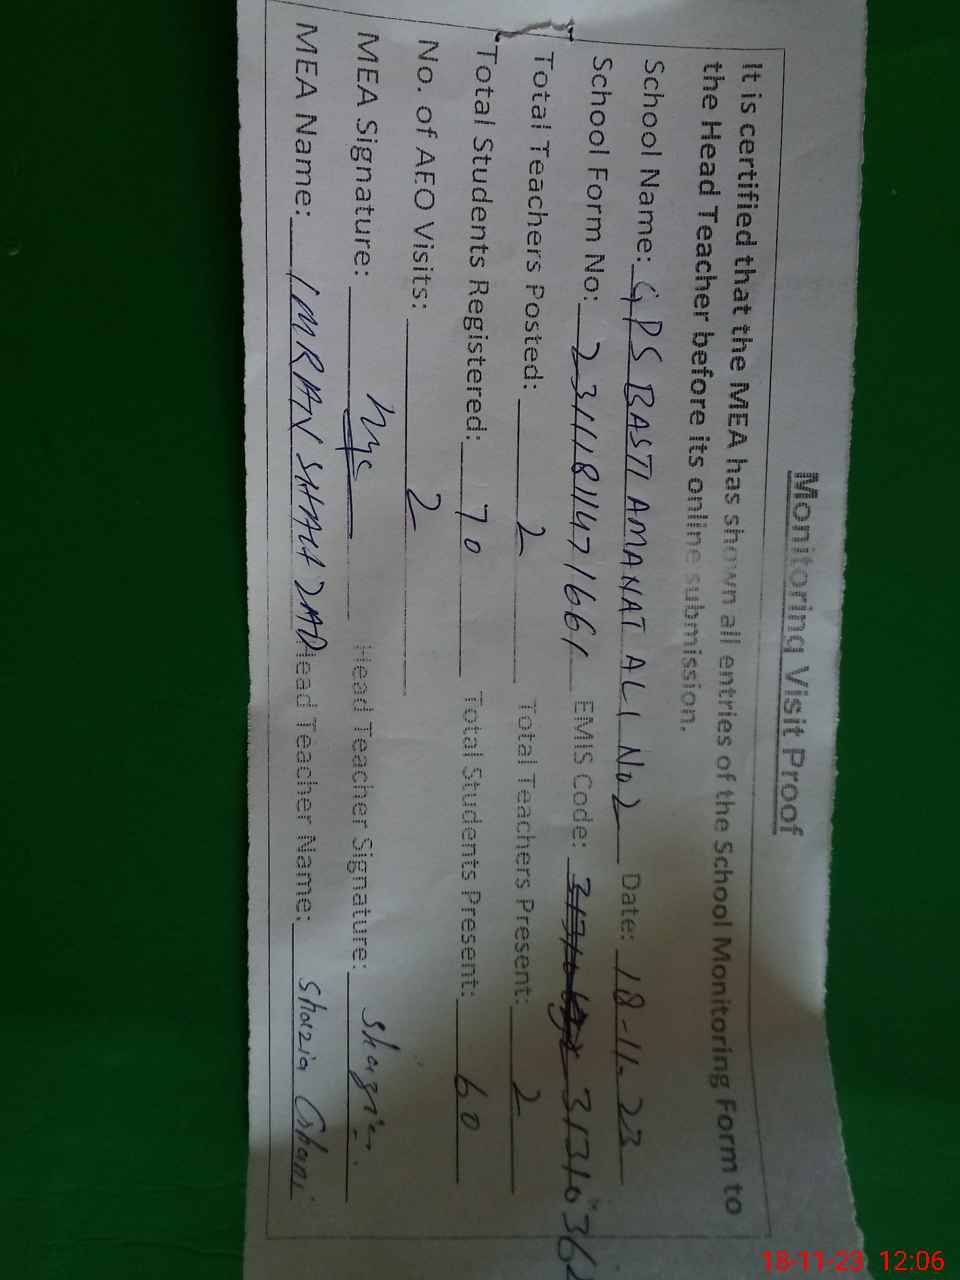 Monitoring Visit Proof
It is certified that the MEA has shown all entries of the School Monitoring Form to
the Head Teacher before its online submission.
School Name: GPS BASTI AMANAT ALI No 2 Date: 18-11-23
School Form No: 231118114771661 EMIS Code: 3131036
Total Teachers Posted: 2 Total Teachers Present: 2
Total Students Registered: 70 Total Students Present: 60
No. of AEO Visits: 2
MEA Signature: Head Teacher Signature: Shazia
MEA Name: IMRAN SHAHZAD Head Teacher Name: Shazia Ghani
18-11-23 12:06